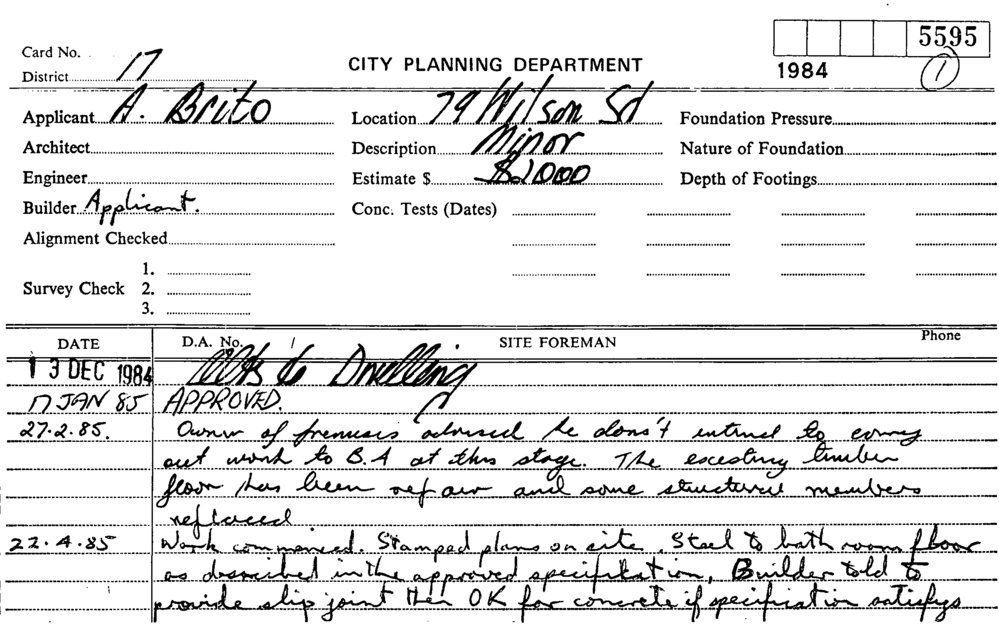 5595
Card No.
1984
1
District 17
CITY PLANNING DEPARTMENT
Applicant A. Brito
Location 79 Wilson St
Foundation Pressure
Architect
Description Minor
Nature of Foundation
Engineer
Estimate $ $2000
Depth of Footings
Builder Applicant.
Conc. Tests (Dates)
Alignment Checked
1.
Survey Check 2.
3.
DATE D.A. No. SITE FOREMAN Phone
13 DEC 1984 to Dwelling
17 JAN 85 APPROVED.
27.2.85. Owner of premises advised he dons't intend to carry
out work to B.A at this stage. The excesting timber
floor has been repair and some structure members
replaced.
22.4.85 Work commenced. Stamped plans on site. Steel to bath room floor
as described in the approved specification, Builder told to
provide slip joint then OK for concrete if specification satisfys